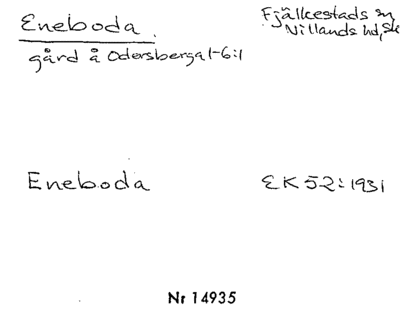 Eneboda
Fjälkestads sn
Villands hd, Sk
gård å Odersberga 1-6:1
Eneboda
EK 52: 1931
Nr 14935